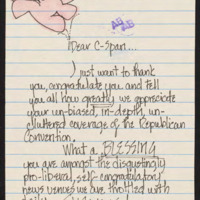 Dear C-Span...
I just want to thank
you, congratulate you and tell
you all how greatly we appreciate
your un-biased, in-depth, un-
cluttered coverage of the Republican
Convention.
What a BLESSING
you are amongst the disgustingly
pro-liberal, self-congratulatory
news venues we are
with